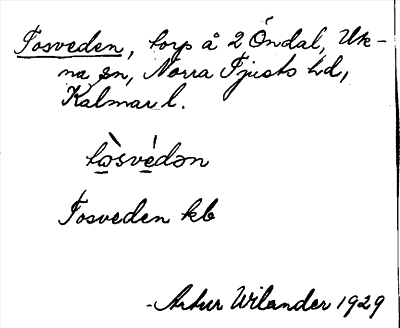 Tosveden, torp å 2 Öndal, Uk-
na sn, Norra Tjusts hd,
Kalmar l.
tɷ̀svédən
Tosveden kb
-Artur Wilander 1929